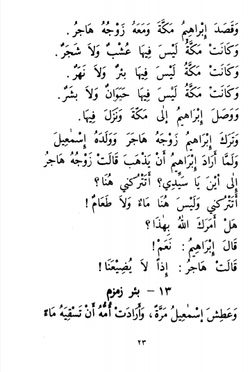 وَقَصَدَ إِبْرَاهِيمُ مَكَّةَ وَمَعَهُ زَوْجُهُ هَاجَرُ.
وَكَانَتْ مَكَّةُ لَيْسَ فِيهَا عُشْبٌ وَلاَ شَجَرٌ.
وَكَانَتْ مَكَّةُ لَيْسَ فِيهَا بِئْرٌ وَلاَ نَهْرٌ.
وَكَانَتْ مَكَّةُ لَيْسَ فِيهَا حَيَوَانٌ وَلاَ بَشَرٌ.
وَوَصَلَ إِبْرَاهِيمُ إِلَى مَكَّةَ وَنَزَلَ فِيهَا.
وَتَرَكَ إِبْرَاهِيمُ زَوْجَهُ هَاجَرَ وَوَلَدَهُ إِسْمٰعِيلَ
وَلَمَّا أَرَادَ إِبْرَاهِيمُ أَنْ يَذْهَبَ قَالَتْ زَوْجُهُ هَاجَرُ
إِلَى أَيْنَ يَا سَيِّدِي؟ أَتَتْرُكُنِي هُنَا؟
أَتَتْرُكُنِي وَلَيْسَ هُنَا مَاءٌ وَلاَ طَعَامٌ!
هَلْ أَمَرَكَ اللهُ بِهٰذَا؟
قَالَ إِبْرَاهِيمُ: نَعَمْ!
قَالَتْ هَاجَرُ: إِذاً لاَ يُضِيعَنَا!
١٣ - بئر زمزم
وَعَطِشَ إِسْمٰعِيلُ مَرَّةً، وَأَرَادَتْ أُمُّهُ أَنْ تَسْقِيَهُ مَاءً
٢٣